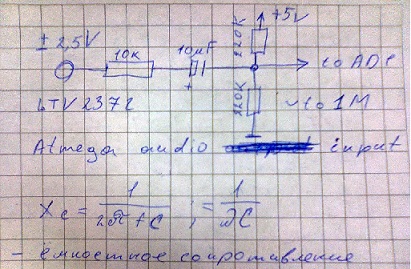 +5V
± 2,5V
10K
10µF
220K
to ADC
+
LTV2372
220K
~to 1M
Atmega audio input
Xc = 1/2πfC ; = 1/ωC
- емкостное сопротивление